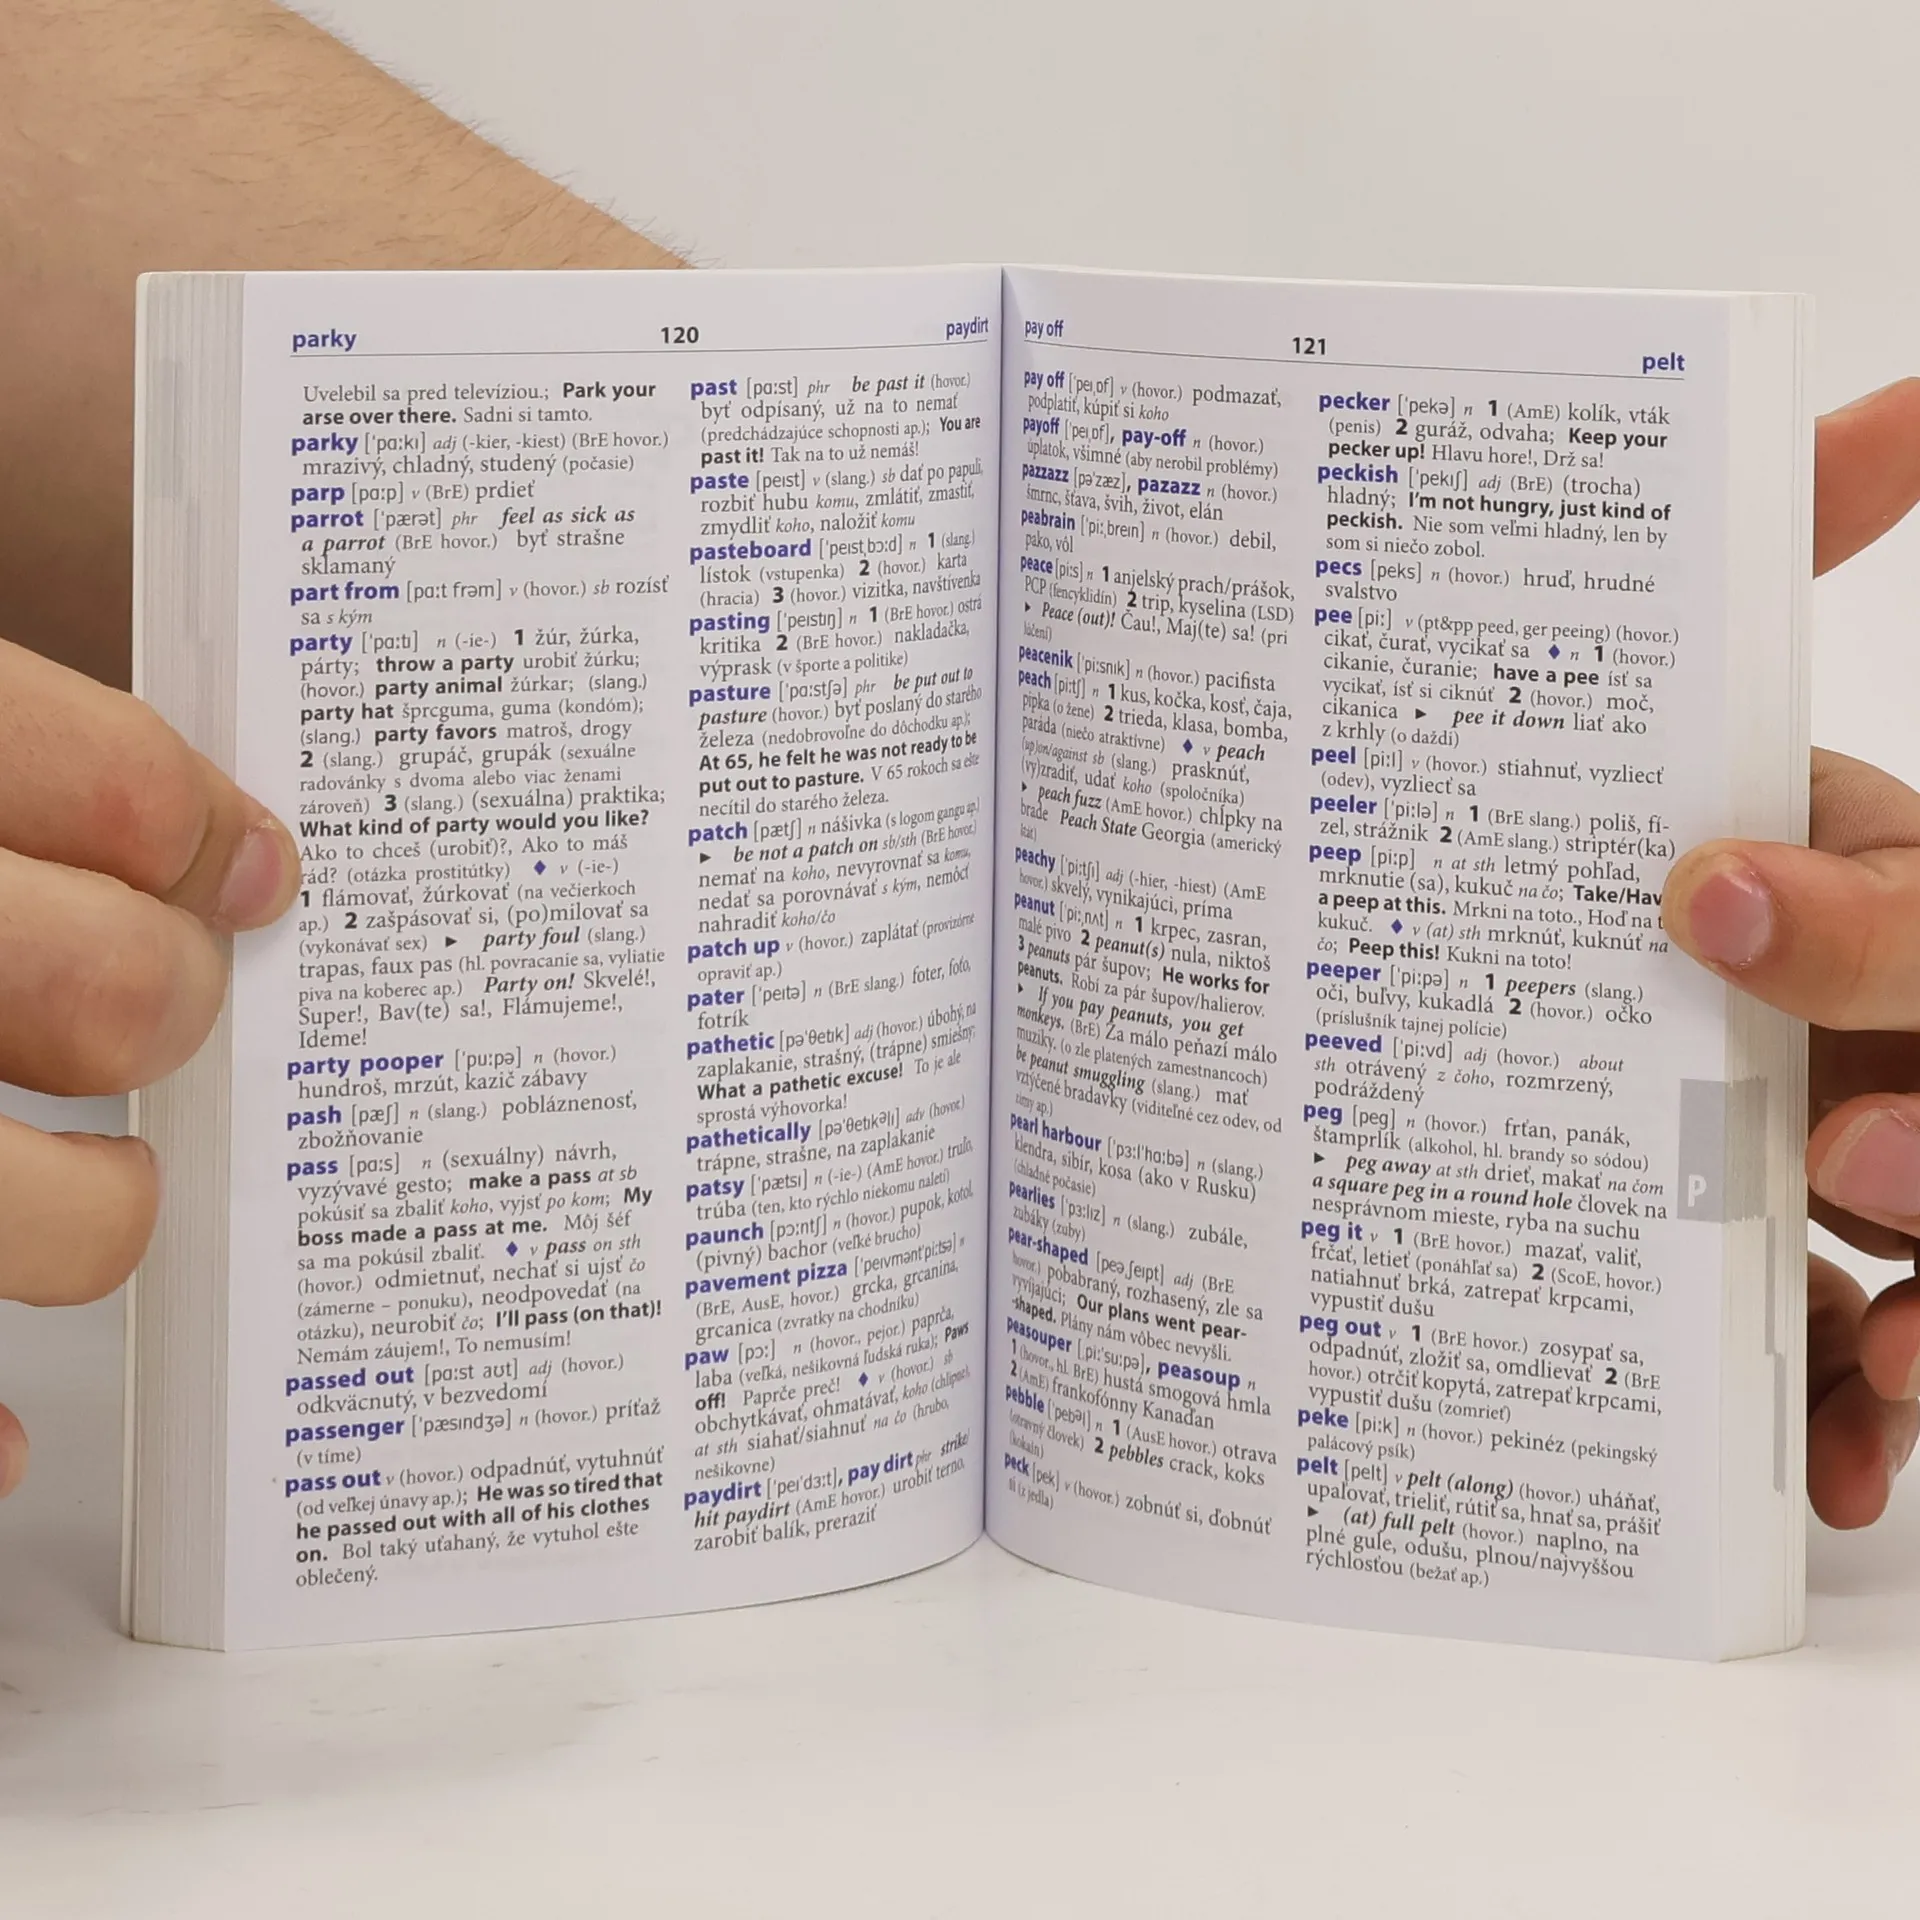 parky 120 paydirt
Uvelebil sa pred televíziou.; Park your
arse over there. Sadni si tamto.
parky [ˈpɑːkɪ] adj (-kier, -kiest) (BrE hovor.)
mrazivý, chladný, studený (počasie)
parp [pɑːp] v (BrE) prdieť
parrot [ˈpærət] phr feel as sick as
a parrot (BrE hovor.) byť strašne
sklamaný
part from [pɑːt frəm] v (hovor.) sb rozísť
sa s kým
party [ˈpɑːtɪ] n (-ie-) 1 žúr, žúrka,
párty; throw a party urobiť žúrku;
(hovor.) party animal žúrkar; (slang.)
party hat šprcguma, guma (kondóm);
(slang.) party favors matroš, drogy
2 (slang.) grupáč, grupák (sexuálne
radovánky s dvoma alebo viac ženami
zároveň) 3 (slang.) (sexuálna) praktika;
What kind of party would you like?
Ako to chceš (urobiť)?, Ako to máš
rád? (otázka prostitútky) ♦ v (-ie-)
1 flámovať, žúrkovať (na večierkoch
ap.) 2 zašpásovať si, (po)milovať sa
(vykonávať sex) ► party foul (slang.)
trapas, faux pas (hl. povracanie sa, vyliatie
piva na koberec ap.) Party on! Skvelé!,
Super!, Bav(te) sa!, Flámujeme!,
Ideme!
party pooper [ˈpuːpə] n (hovor.)
hundroš, mrzút, kazič zábavy
pash [pæʃ] n (slang.) pobláznenosť,
zbožňovanie
pass [pɑːs] n (sexuálny) návrh,
vyzývavé gesto; make a pass at sb
pokúsiť sa zbaliť koho, vyjsť po kom; My
boss made a pass at me. Môj šéf
sa ma pokúsil zbaliť. ♦ v pass on sth
(hovor.) odmietnuť, nechať si ujsť čo
(zámerne – ponuku), neodpovedať (na
otázku), neurobiť čo; I'll pass (on that)!
Nemám záujem!, To nemusím!
passed out [pɑːst aʊt] adj (hovor.)
odkväcnutý, v bezvedomí
passenger [ˈpæsɪndʒə] n (hovor.) príťaž
(v tíme)
pass out v (hovor.) odpadnúť, vytuhnúť
(od veľkej únavy ap.); He was so tired that
he passed out with all of his clothes
on. Bol taký uťahaný, že vytuhol ešte
oblečený.
past [pɑːst] phr be past it (hovor.)
byť odpísaný, už na to nemať
(predchádzajúce schopnosti ap.); You are
past it! Tak na to už nemáš!
paste [peɪst] v (slang.) sb dať po papuli,
rozbiť hubu komu, zmlátiť, zmastiť,
zmydliť koho, naložiť komu
pasteboard [ˈpeɪstˌbɔːd] n 1 (slang.)
lístok (vstupenka) 2 (hovor.) karta
(hracia) 3 (hovor.) vizitka, navštívenka
pasting [ˈpeɪstɪŋ] n 1 (BrE hovor.) ostrá
kritika 2 (BrE hovor.) nakladačka,
výprask (v športe a politike)
pasture [ˈpɑːstʃə] phr be put out to
pasture (hovor.) byť poslaný do starého
železa (nedobrovoľne do dôchodku ap.);
At 65, he felt he was not ready to be
put out to pasture. V 65 rokoch sa ešte
necítil do starého železa.
patch [pætʃ] n nášivka (s logom gangu ap.)
► be not a patch on sb/sth (BrE hovor.)
nemať na koho, nevyrovnať sa komu,
nedať sa porovnávať s kým, nemôcť
nahradiť koho/čo
patch up v (hovor.) zaplátať (provizórne
opraviť ap.)
pater [ˈpeɪtə] n (BrE slang.) foter, foťo,
fotrík
pathetic [pəˈθetɪk] adj (hovor.) úbohý, na
zaplakanie, strašný, (trápne) smiešny;
What a pathetic excuse! To je ale
sprostá výhovorka!
pathetically [pəˈθetɪkᵊlɪ] adv (hovor.)
trápne, strašne, na zaplakanie
patsy [ˈpætsɪ] n (-ie-) (AmE hovor.) truľo,
trúba (ten, kto rýchlo niekomu naletí)
paunch [pɔːntʃ] n (hovor.) pupok, kotol,
(pivný) bachor (veľké brucho)
pavement pizza [ˈpeɪvməntˈpiːtsə] n
(BrE, AusE, hovor.) grcka, grcanina,
grcanica (zvratky na chodníku)
paw [pɔː] n (hovor., pejor.) paprča,
laba (veľká, nešikovná ľudská ruka); Paws
off! Paprče preč! ♦ v (hovor.) sb
obchytkávať, ohmatávať, koho (chlipne),
at sth siahať/siahnuť na čo (hrubo,
nešikovne)
paydirt [ˈpeɪˈdɜːt], pay dirt phr strike/
hit paydirt (AmE hovor.) urobiť terno,
zarobiť balík, preraziť
pay off 121 pelt
pay off [ˈpeɪˌɒf] v (hovor.) podmazať,
podplatiť, kúpiť si koho
payoff [ˈpeɪˌɒf], pay-off n (hovor.)
úplatok, všimné (aby nerobil problémy)
pazzazz [pəˈzæz], pazazz n (hovor.)
šmrnc, šťava, švih, život, elán
peabrain [ˈpiːˌbreɪn] n (hovor.) debil,
pako, vôl
peace [piːs] n 1 anjelský prach/prášok,
PCP (fencyklidín) 2 trip, kyselina (LSD)
► Peace (out)! Čau!, Maj(te) sa! (pri
lúčení)
peacenik [ˈpiːsnɪk] n (hovor.) pacifista
peach [piːtʃ] n 1 kus, kočka, kosť, čaja,
pipka (o žene) 2 trieda, klasa, bomba,
paráda (niečo atraktívne) ♦ v peach
(up)on/against sb (slang.) prasknúť,
(vy)zradiť, udať koho (spoločníka)
► peach fuzz (AmE hovor.) chĺpky na
brade Peach State Georgia (americký
štát)
peachy [ˈpiːtʃɪ] adj (-hier, -hiest) (AmE
hovor.) skvelý, vynikajúci, príma
peanut [ˈpiːˌnʌt] n 1 krpec, zasran,
malé pivo 2 peanut(s) nula, niktoš
3 peanuts pár šupov; He works for
peanuts. Robí za pár šupov/halierov.
► If you pay peanuts, you get
monkeys. (BrE) Za málo peňazí málo
muziky. (o zle platených zamestnancoch)
be peanut smuggling (slang.) mať
vztýčené bradavky (viditeľné cez odev, od
zimy ap.)
pearl harbour [ˈpɜːlˈhɑːbə] n (slang.)
klendra, sibír, kosa (ako v Rusku)
(chladné počasie)
pearlies [ˈpɜːlɪz] n (slang.) zubále,
zubáky (zuby)
pear-shaped [peəˌʃeɪpt] adj (BrE
hovor.) pobabraný, rozhasený, zle sa
vyvíjajúci; Our plans went pear-
-shaped. Plány nám vôbec nevyšli.
peasouper [ˌpiːˈsuːpə], peasoup n
1 (hovor., hl. BrE) hustá smogová hmla
2 (AmE) frankofónny Kanaďan
pebble [ˈpebᵊl] n 1 (AusE hovor.) otrava
(otravný človek) 2 pebbles crack, koks
(kokaín)
peck [pek] v (hovor.) zobnúť si, ďobnúť
si (z jedla)
pecker [ˈpekə] n 1 (AmE) kolík, vták
(penis) 2 guráž, odvaha; Keep your
pecker up! Hlavu hore!, Drž sa!
peckish [ˈpekɪʃ] adj (BrE) (trocha)
hladný; I'm not hungry, just kind of
peckish. Nie som veľmi hladný, len by
som si niečo zobol.
pecs [peks] n (hovor.) hruď, hrudné
svalstvo
pee [piː] v (pt&pp peed, ger peeing) (hovor.)
cikať, čurať, vycikať sa ♦ n 1 (hovor.)
cikanie, čuranie; have a pee ísť sa
vycikať, ísť si ciknúť 2 (hovor.) moč,
cikanica ► pee it down liať ako
z krhly (o daždi)
peel [piːl] v (hovor.) stiahnuť, vyzliecť
(odev), vyzliecť sa
peeler [ˈpiːlə] n 1 (BrE slang.) poliš, fí-
zel, strážnik 2 (AmE slang.) striptér(ka)
peep [piːp] n at sth letmý pohľad,
mrknutie (sa), kukuč na čo; Take/Hav
a peep at this. Mrkni na toto., Hoď na t
kukuč. ♦ v (at) sth mrknúť, kuknúť na
čo; Peep this! Kukni na toto!
peeper [ˈpiːpə] n 1 peepers (slang.)
oči, buľvy, kukadlá 2 (hovor.) očko
(príslušník tajnej polície)
peeved [ˈpiːvd] adj (hovor.) about
sth otrávený z čoho, rozmrzený,
podráždený
peg [peg] n (hovor.) frťan, panák,
štamprlík (alkohol, hl. brandy so sódou)
► peg away at sth drieť, makať na čom
a square peg in a round hole človek na
nesprávnom mieste, ryba na suchu
peg it v 1 (BrE hovor.) mazať, valiť,
frčať, letieť (ponáhľať sa) 2 (ScoE, hovor.)
natiahnuť brká, zatrepať krpcami,
vypustiť dušu
peg out v 1 (BrE hovor.) zosypať sa,
odpadnúť, zložiť sa, omdlievať 2 (BrE
hovor.) otrčiť kopytá, zatrepať krpcami,
vypustiť dušu (zomrieť)
peke [piːk] n (hovor.) pekinéz (pekingský
palácový psík)
pelt [pelt] v pelt (along) (hovor.) uháňať,
upaľovať, trieliť, rútiť sa, hnať sa, prášiť
► (at) full pelt (hovor.) naplno, na
plné gule, odušu, plnou/najvyššou
rýchlosťou (bežať ap.)
P